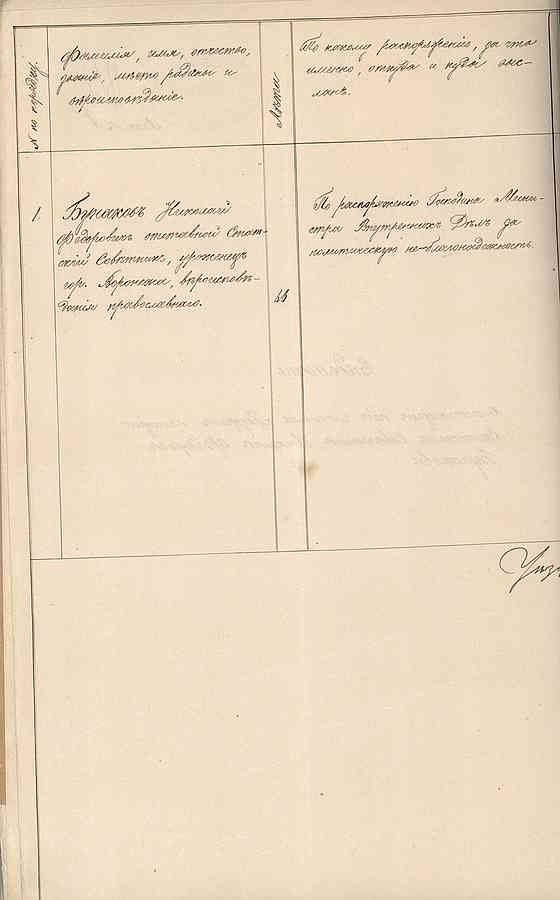 N по порядку.
Фамилія, имя, отчество,
званіе, место родины и
вѣроисповѣданіе.
Лѣта
По какому распоряженію, за что
именно, откуда и куда выс-
ланъ.
1.
Бунаковъ Николай
Федоровичъ отставной Стат-
скій Совѣтникъ, уроженецъ
гор. Воронежа, вѣроисповѣ-
данія православнаго.
По распоряженію Господина Мини-
стра Внутреннихъ Дѣлъ за
политическую не-благонадежность.